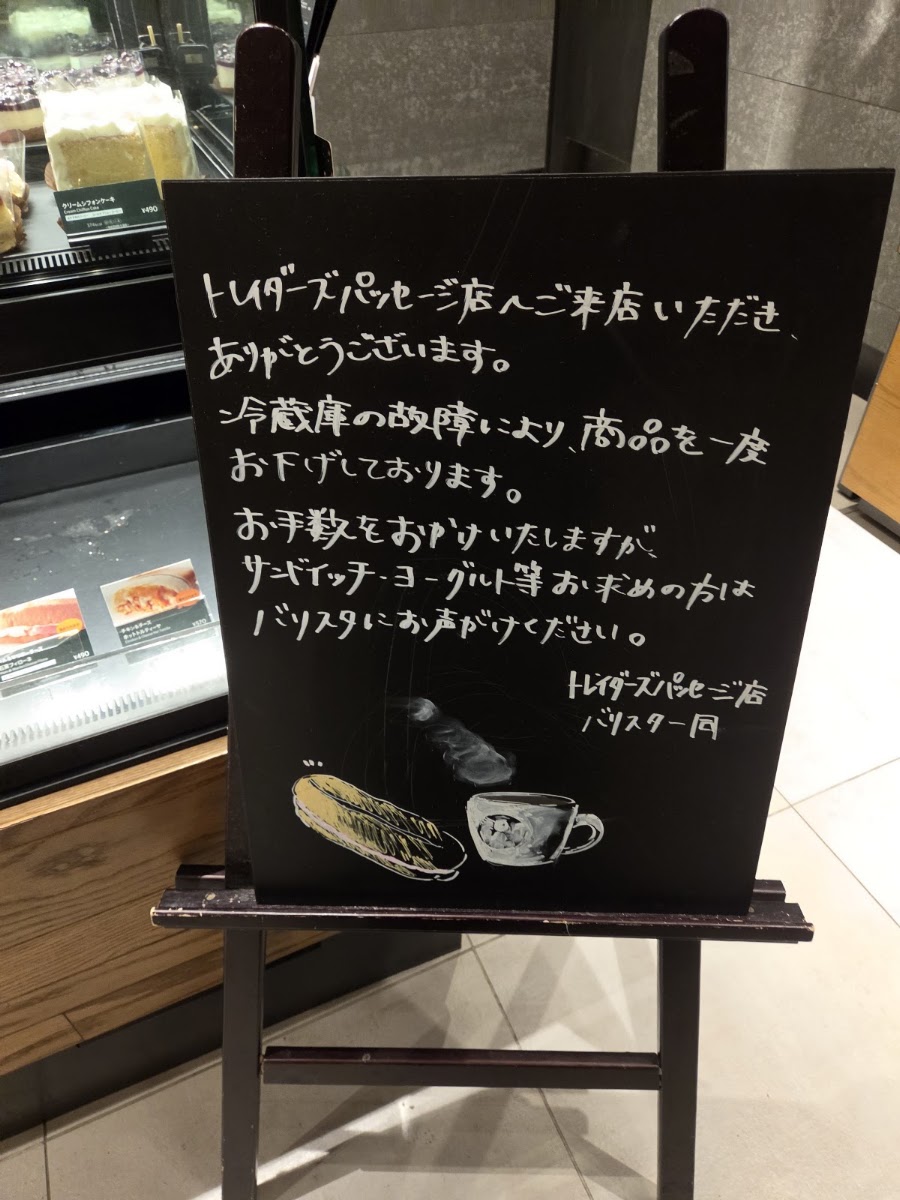 トレイダーズパッセージ店へご来店いただき、
ありがとうございます。
冷蔵庫の故障により、商品を一度
お下げしております。
お手数をおかけいたしますが、
サンドイッチ・ヨーグルト等お求めの方は
バリスタにお声がけください。
トレイダーズパッセージ店
バリスタ一同
クリームシフォンケーキ
Cream Chiffon Cake
¥490
¥490
チキン&チーズ
ホットトルティーヤ
¥570